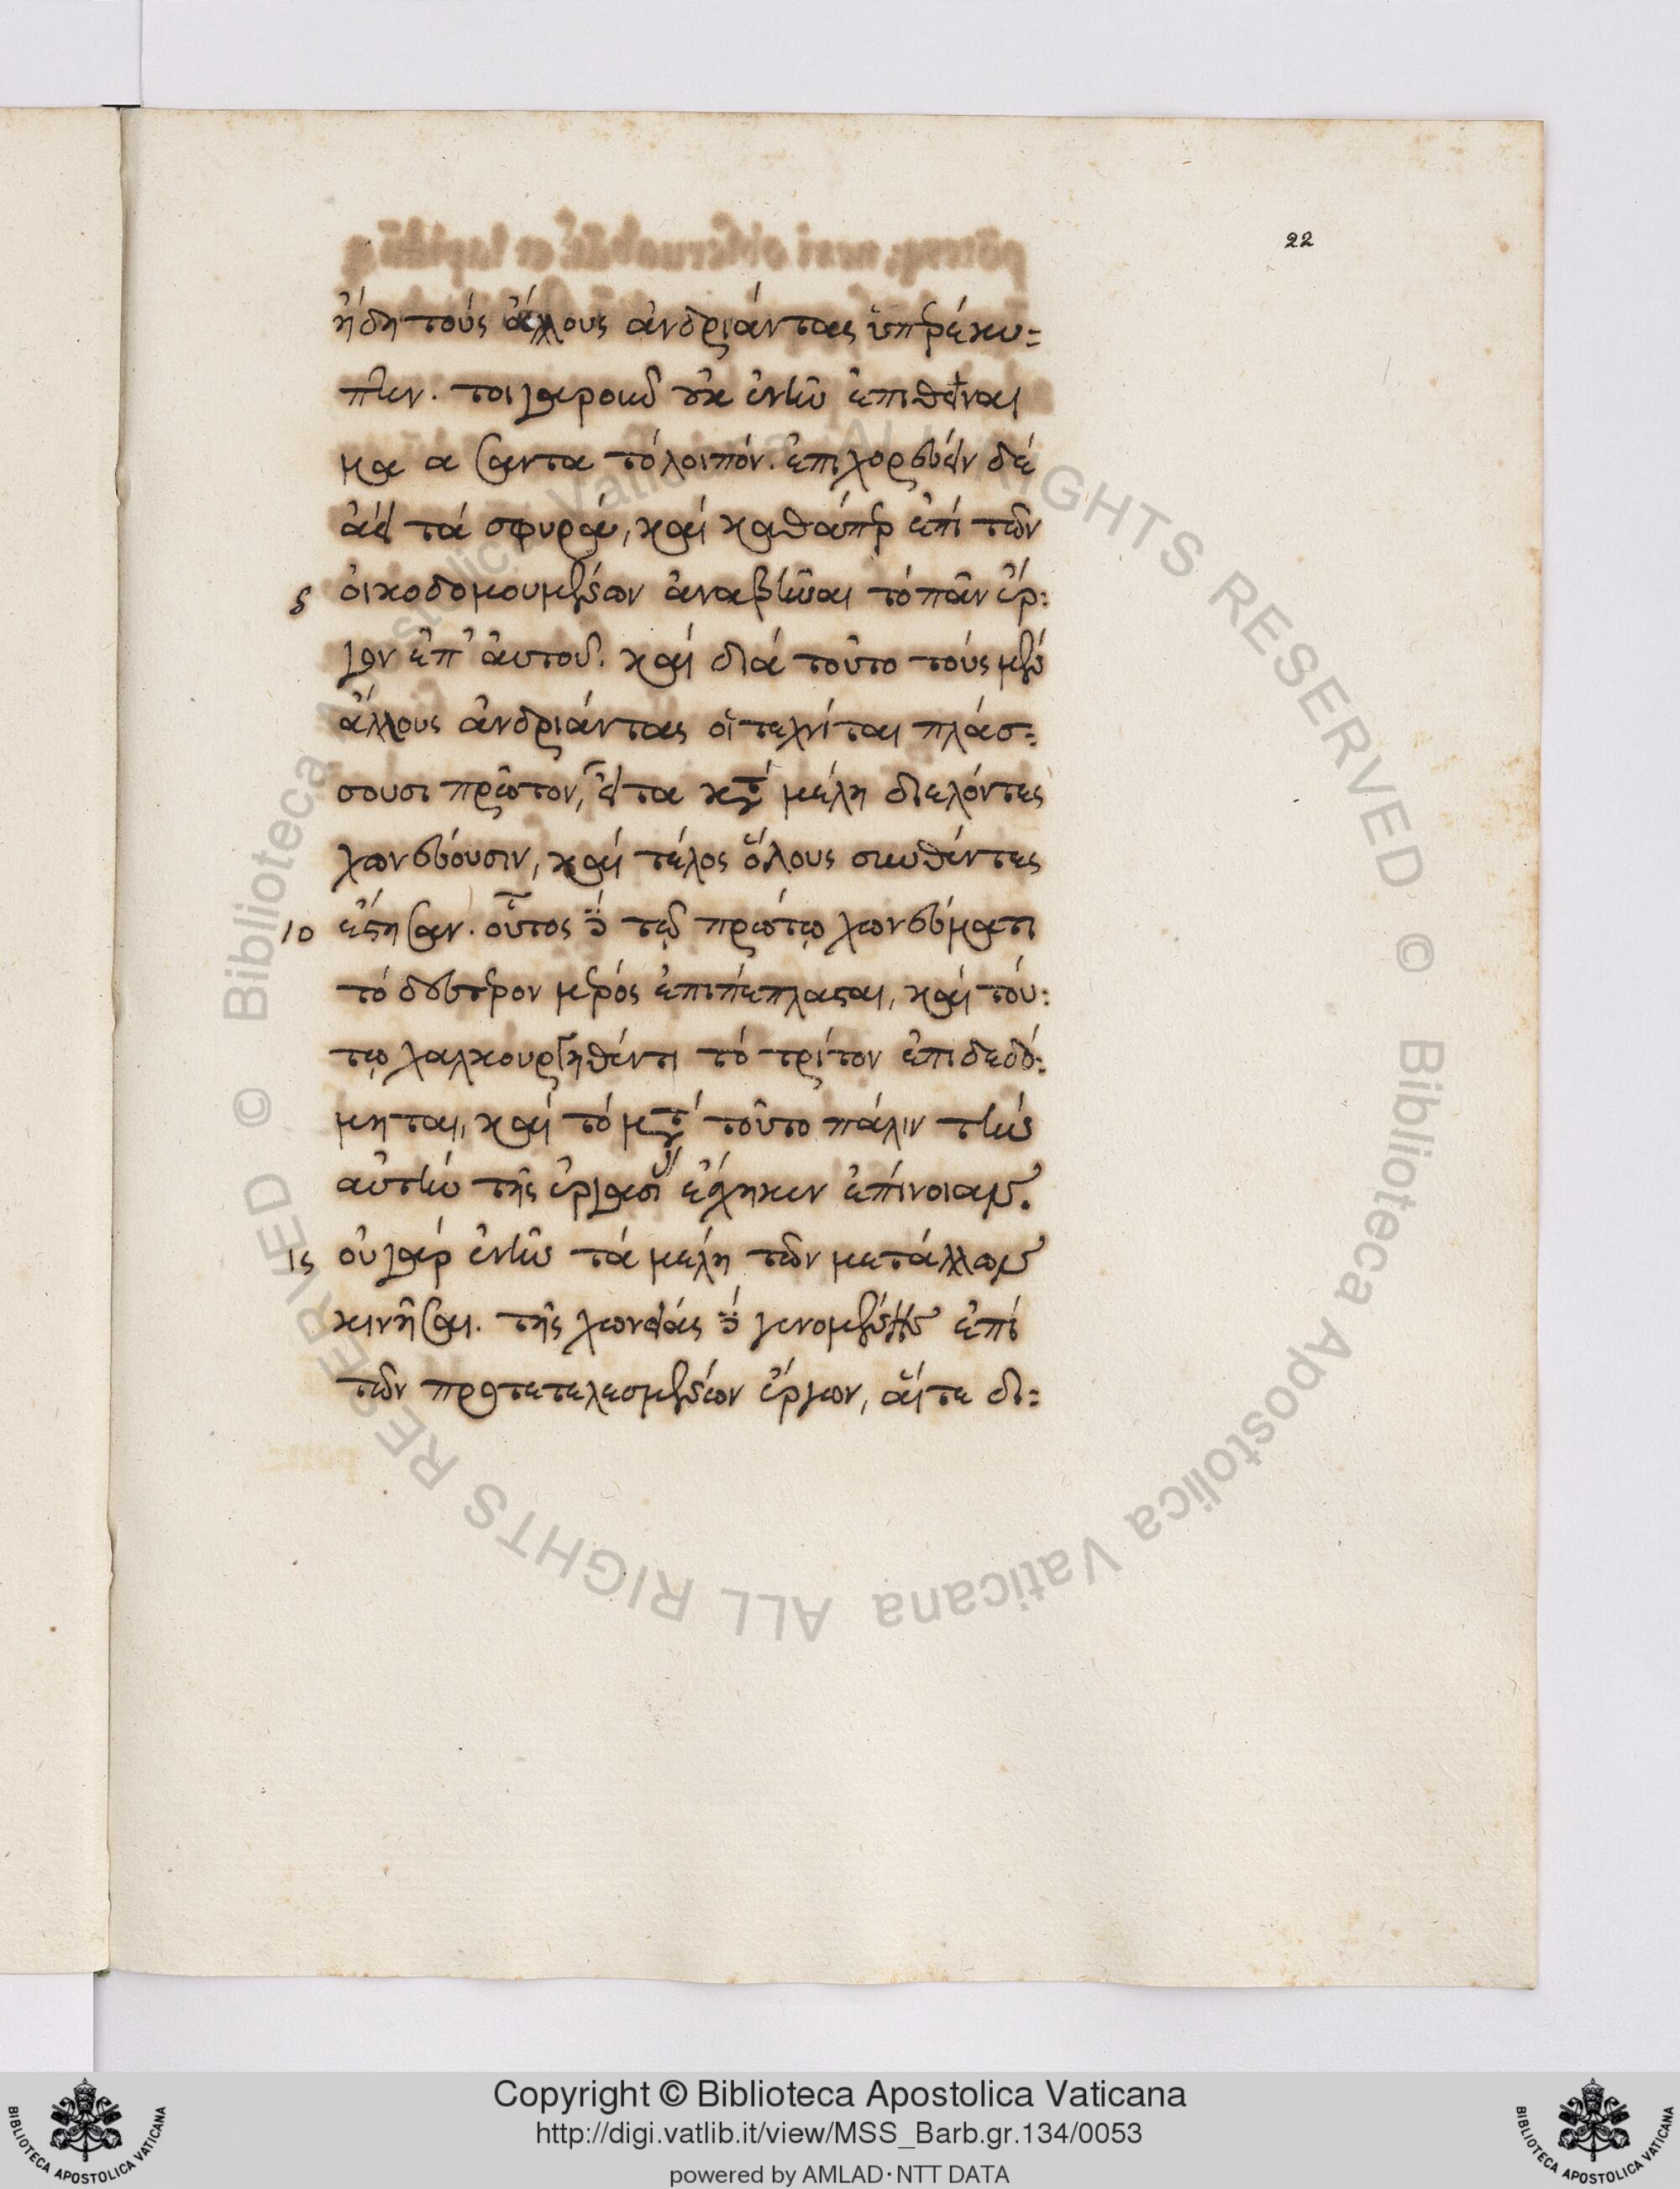 22
ἤδη τοὺς ἄλλους ἀνδριάντας ὑπερέκυ-
πτεν. τοιγαροῦν οὐκ ἐνῆν ἐπιθεῖναι
μα α σαντα τὸ λοιπόν. ἐπιχορεύειν δὲ
ἀεὶ τὰ σφυρὰ, καὶ καθάπερ ἐπὶ τῶν
5 οἰκοδομουμένων ἀναβῆναι τὸ πᾶν ἔρ:
γον ἐπ' ἀυτοῦ. καὶ διὰ τοῦτο τοὺς μὲν
ἄλλους ἀνδριάντας οἱ τεχνίται πλάσ:
σουσι πρῶτον, εἶτα κατὰ μέλη διελόντες
χωνεύουσιν, καὶ τέλος ὅλους συνθέντες
10 ἔστησαν. οὗτος δὲ τῷ πρώτῳ χωνεύματι
τὸ δεύτερον μέρος ἐπιπέπλασται, καὶ τού:
τῳ χαλκουργηθέντι τὸ τρίτον ἐπιδεδό:
μηται, καὶ τὸ μετὰ τοῦτο πάλιν τὴν
αὐτὴν τῆς ἐργασίας ἔσχηκεν ἐπίνοιαν.
15 οὐ γὰρ ἐνῆν τὰ μέλη τῶν μετάλλων
κινῆσαι. τῆς χωνείας δὲ γενομένης ἐπὶ
τῶν προτετελεσμένων ἔργων, αἵ τε δι:
© Biblioteca Apostolica Vaticana ALL RIGHTS RESERVED © Biblioteca Apostolica Vaticana ALL RIGHTS RESERVED
BIBLIOTECA APOSTOLICA VATICANA
Copyright © Biblioteca Apostolica Vaticana
http://digi.vatlib.it/view/MSS_Barb.gr.134/0053
powered by AMLAD·NTT DATA
BIBLIOTECA APOSTOLICA VATICANA